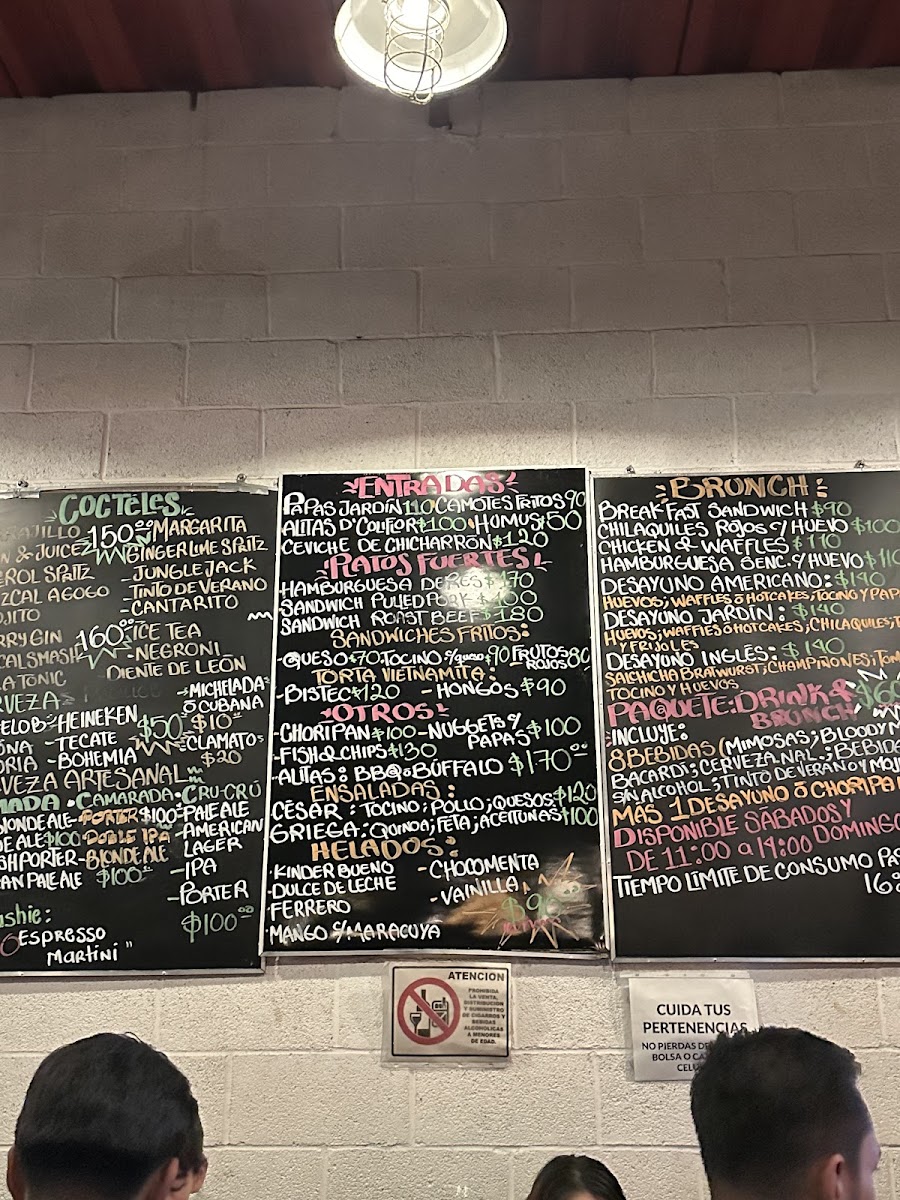 COCTELES
RAJILLO 150.00 MARGARITA
N & JUICE GINGER LIME SPRITZ
EROL SPRITZ - JUNGLE JACK
ZCAL A GOGO - TINTO DE VERANO
OJITO - CANTARITO
RRY GIN 160.00 ICE TEA
CAL SMASH - NEGRONI
A TONIC DIENTE DE LEÓN
VEZA
ELOB - HEINEKEN $50 MICHELADA Ó CUBANA $10
ONA - TECATE CLAMATO $20
ORIA - BOHEMIA
VEZA ARTESANAL
MADA • CAMARADA • CRU-CRÚ
BLONDE ALE - PORTER $100 - PALE ALE
DE ALE $100 - DOBLE IPA - AMERICAN LAGER
SH PORTER - BLONDE ALE - IPA
AN PALE ALE $100 - PORTER
$100.00
ushie:
ESPRESSO
MARTINI "
ENTRADAS
PAPAS JARDÍN 110 CAMOTES FRITOS 90
ALITAS D' COLIFLOR $100 • HUMUS $50
CEVICHE DE CHICHARRÓN $120
PLATOS FUERTES!
HAMBURGUESA DE RES $170
SANDWICH PULLED PORK
SANDWICH ROAST BEEF $180
SANDWICHES FRITOS:
- QUESO $70 TOCINO c/queso $90 - FRUTOS ROJOS 80
TORTA VIETNAMITA:
- BISTEC $120 - HONGOS $90
OTROS
- CHORIPAN $100 - NUGGETS c/ PAPAS $100
- FISH & CHIPS $130
- ALITAS: BBQ o BÚFFALO $170.00
ENSALADAS:
CÉSAR: TOCINO; POLLO; QUESOS $120
GRIEGA: QUINOA; FETA; ACEITUNAS $100
HELADOS:
• KINDER BUENO - CHOCOMENTA
- DULCE DE LECHE - VAINILLA
- FERRERO
- MANGO c/MARACUYA
BRUNCH:
BREAKFAST SANDWICH $90
CHILAQUILES ROJOS c/ HUEVO $100
CHICKEN & WAFFLES $110
HAMBURGUESA SENC. c/ HUEVO $110
DESAYUNO AMERICANO: $140
HUEVOS; WAFFLES Ó HOTCAKES; TOCINO Y PAP
DESAYUNO JARDÍN: $140
HUEVOS; WAFFLES Ó HOTCAKES; CHILAQUILES; T
Y FRIJOLES
DESAYUNO INGLÉS: $140
SALCHICHA BRATWURST; CHAMPIÑONES; TOM
TOCINO Y HUEVOS
PAQUETE: DRINK &
BRUNCH
INCLUYE:
8 BEBIDAS (MIMOSAS; BLOODY M
BACARDI; CERVEZA NAL.; BEBIDA
S/N ALCOHOL; TINTO DE VERANO Y MOJ
MÁS 1 DESAYUNO Ó CHORIPA
DISPONIBLE SÁBADOS Y
DE 11:00 a 14:00 DOMINGO
TIEMPO LÍMITE DE CONSUMO PA
16:
ATENCION
PROHIBIDA
LA VENTA,
DISTRIBUCION
Y SUMINISTRO
DE CIGARROS Y
BEBIDAS
ALCOHOLICAS
A MENORES
DE EDAD.
CUIDA TUS
PERTENENCIAS
NO PIERDAS DE
BOLSA O CA
CELU